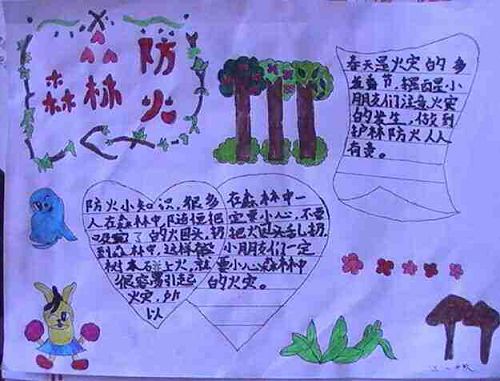 森林
防火
春天是火灾的多
季节,提
朋友们注意火灾
的发生,做到
护林防火人人
有责。
防火小知识,很多
人在森林中随便把
的火
到森林中,这样
树木上火,就
很容易引起
火灾,所
以
在森林中一
定要小心,不要
把火头乱扔
小朋友们一定
要小心森林中
的火灾。